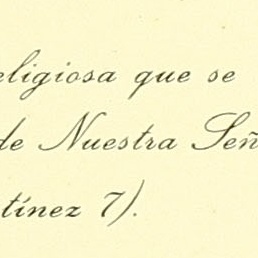 eligiosa que se
de Nuestra Señ
tínez 7).